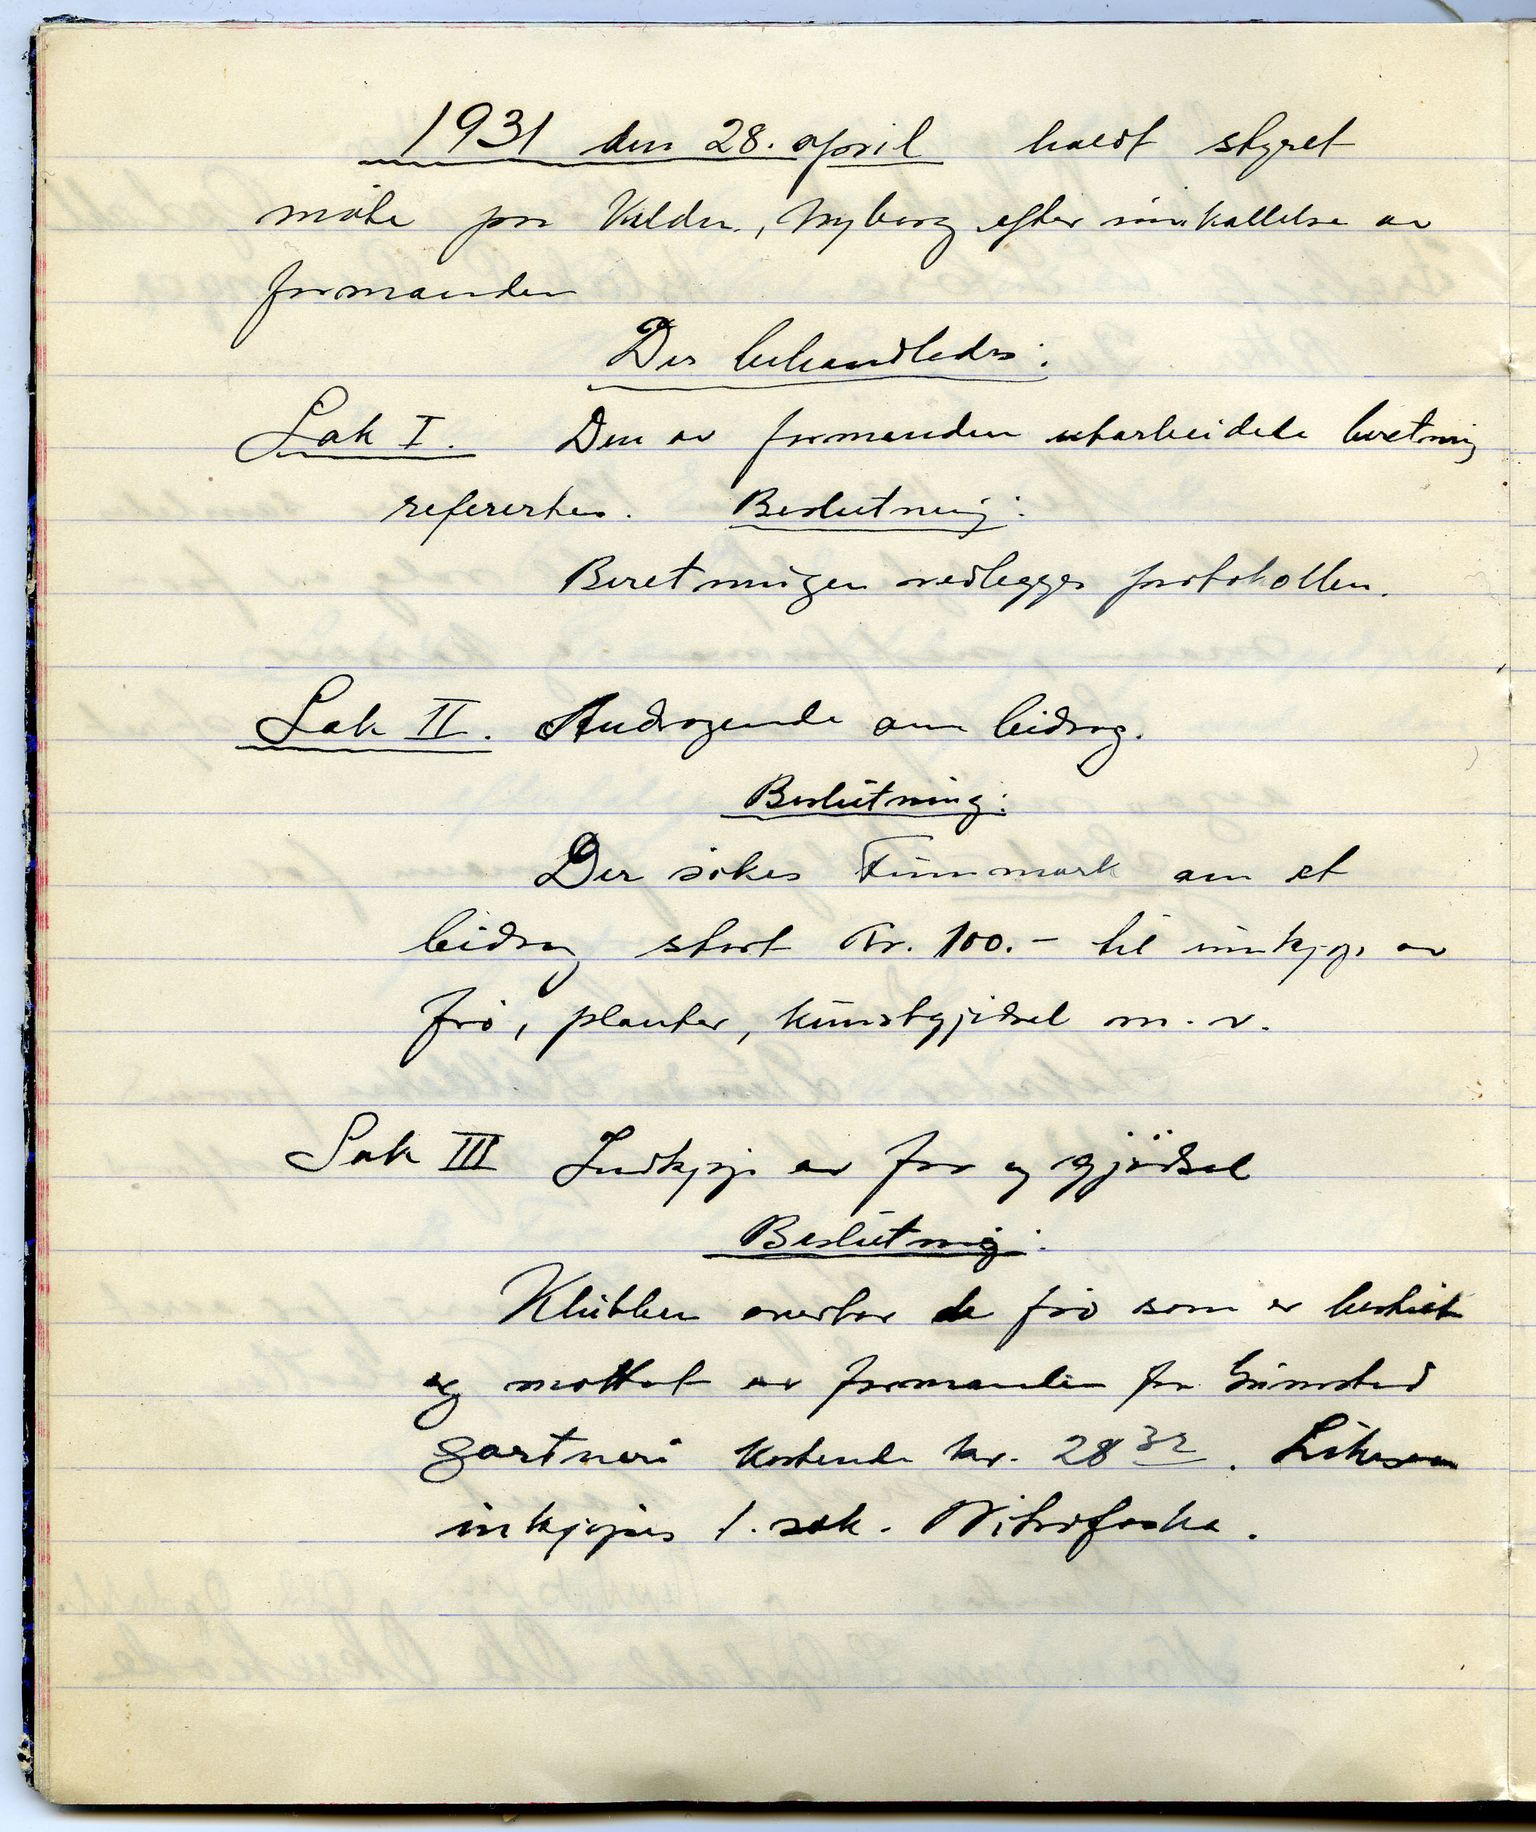 1931 den 28. april holdt styret
møte på Kilden, Nyborg efter innkallelse av
formanden
Der behandledes:
Sak I. Den av formanden utarbeidede beretning
refererteś. Beslutning:
Beretningen vedlegges protokollen.
Sak II. Andragende om bidrag.
Beslutning:
Der søkes Finnmark om et
bidrag stort Kr. 100.- til innkjøp av
frø, planter, kunstgjødsel m. v.
Sak III Indkjøp av frø og gjödsel
Beslutning:
Klubben overtar de frø som er bestilt
og mottat av formanden fra Grimstad
gartneri kostende kr. 28 32. Likesom
inkjøpes 1. sek. Nitrofoska.